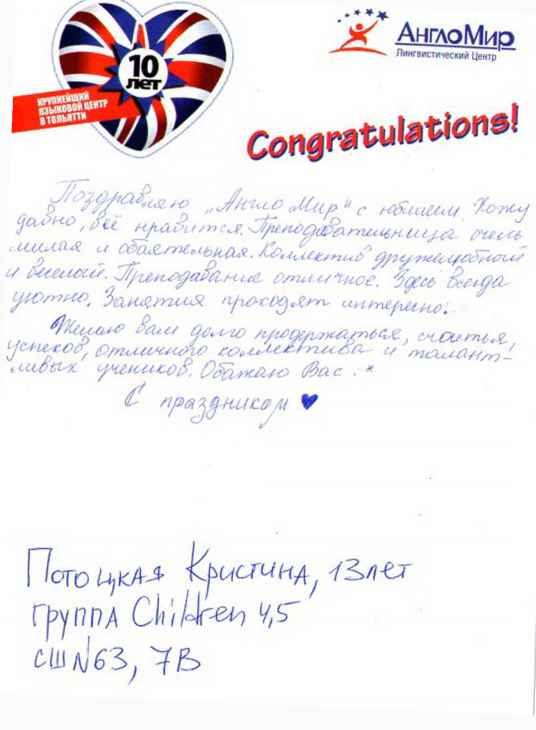 10
лет
КРУПНЕЙШИЙ
ЯЗЫКОВОЙ ЦЕНТР
В ТОЛЬЯТТИ
АнглоМир
Лингвистический Центр
Congratulations!
Поздравляю „Англо Мир" с юбилеем. Хожу
давно, всё нравится. Преподавательница очень
милая и обаятельная. Коллектив дружелюбный
и веселой. Преподавание отличное. Здесь всегда
уютно. Занятия проходят интересно.
Желаю вам долго продержаться, счастья,
успехов, отличного коллектива и талант-
ливых учеников. Обажаю Вас :*
С праздником ♥
Потоцкая Кристина, 13 лет
группа Children 4,5
СШ N63, 7В